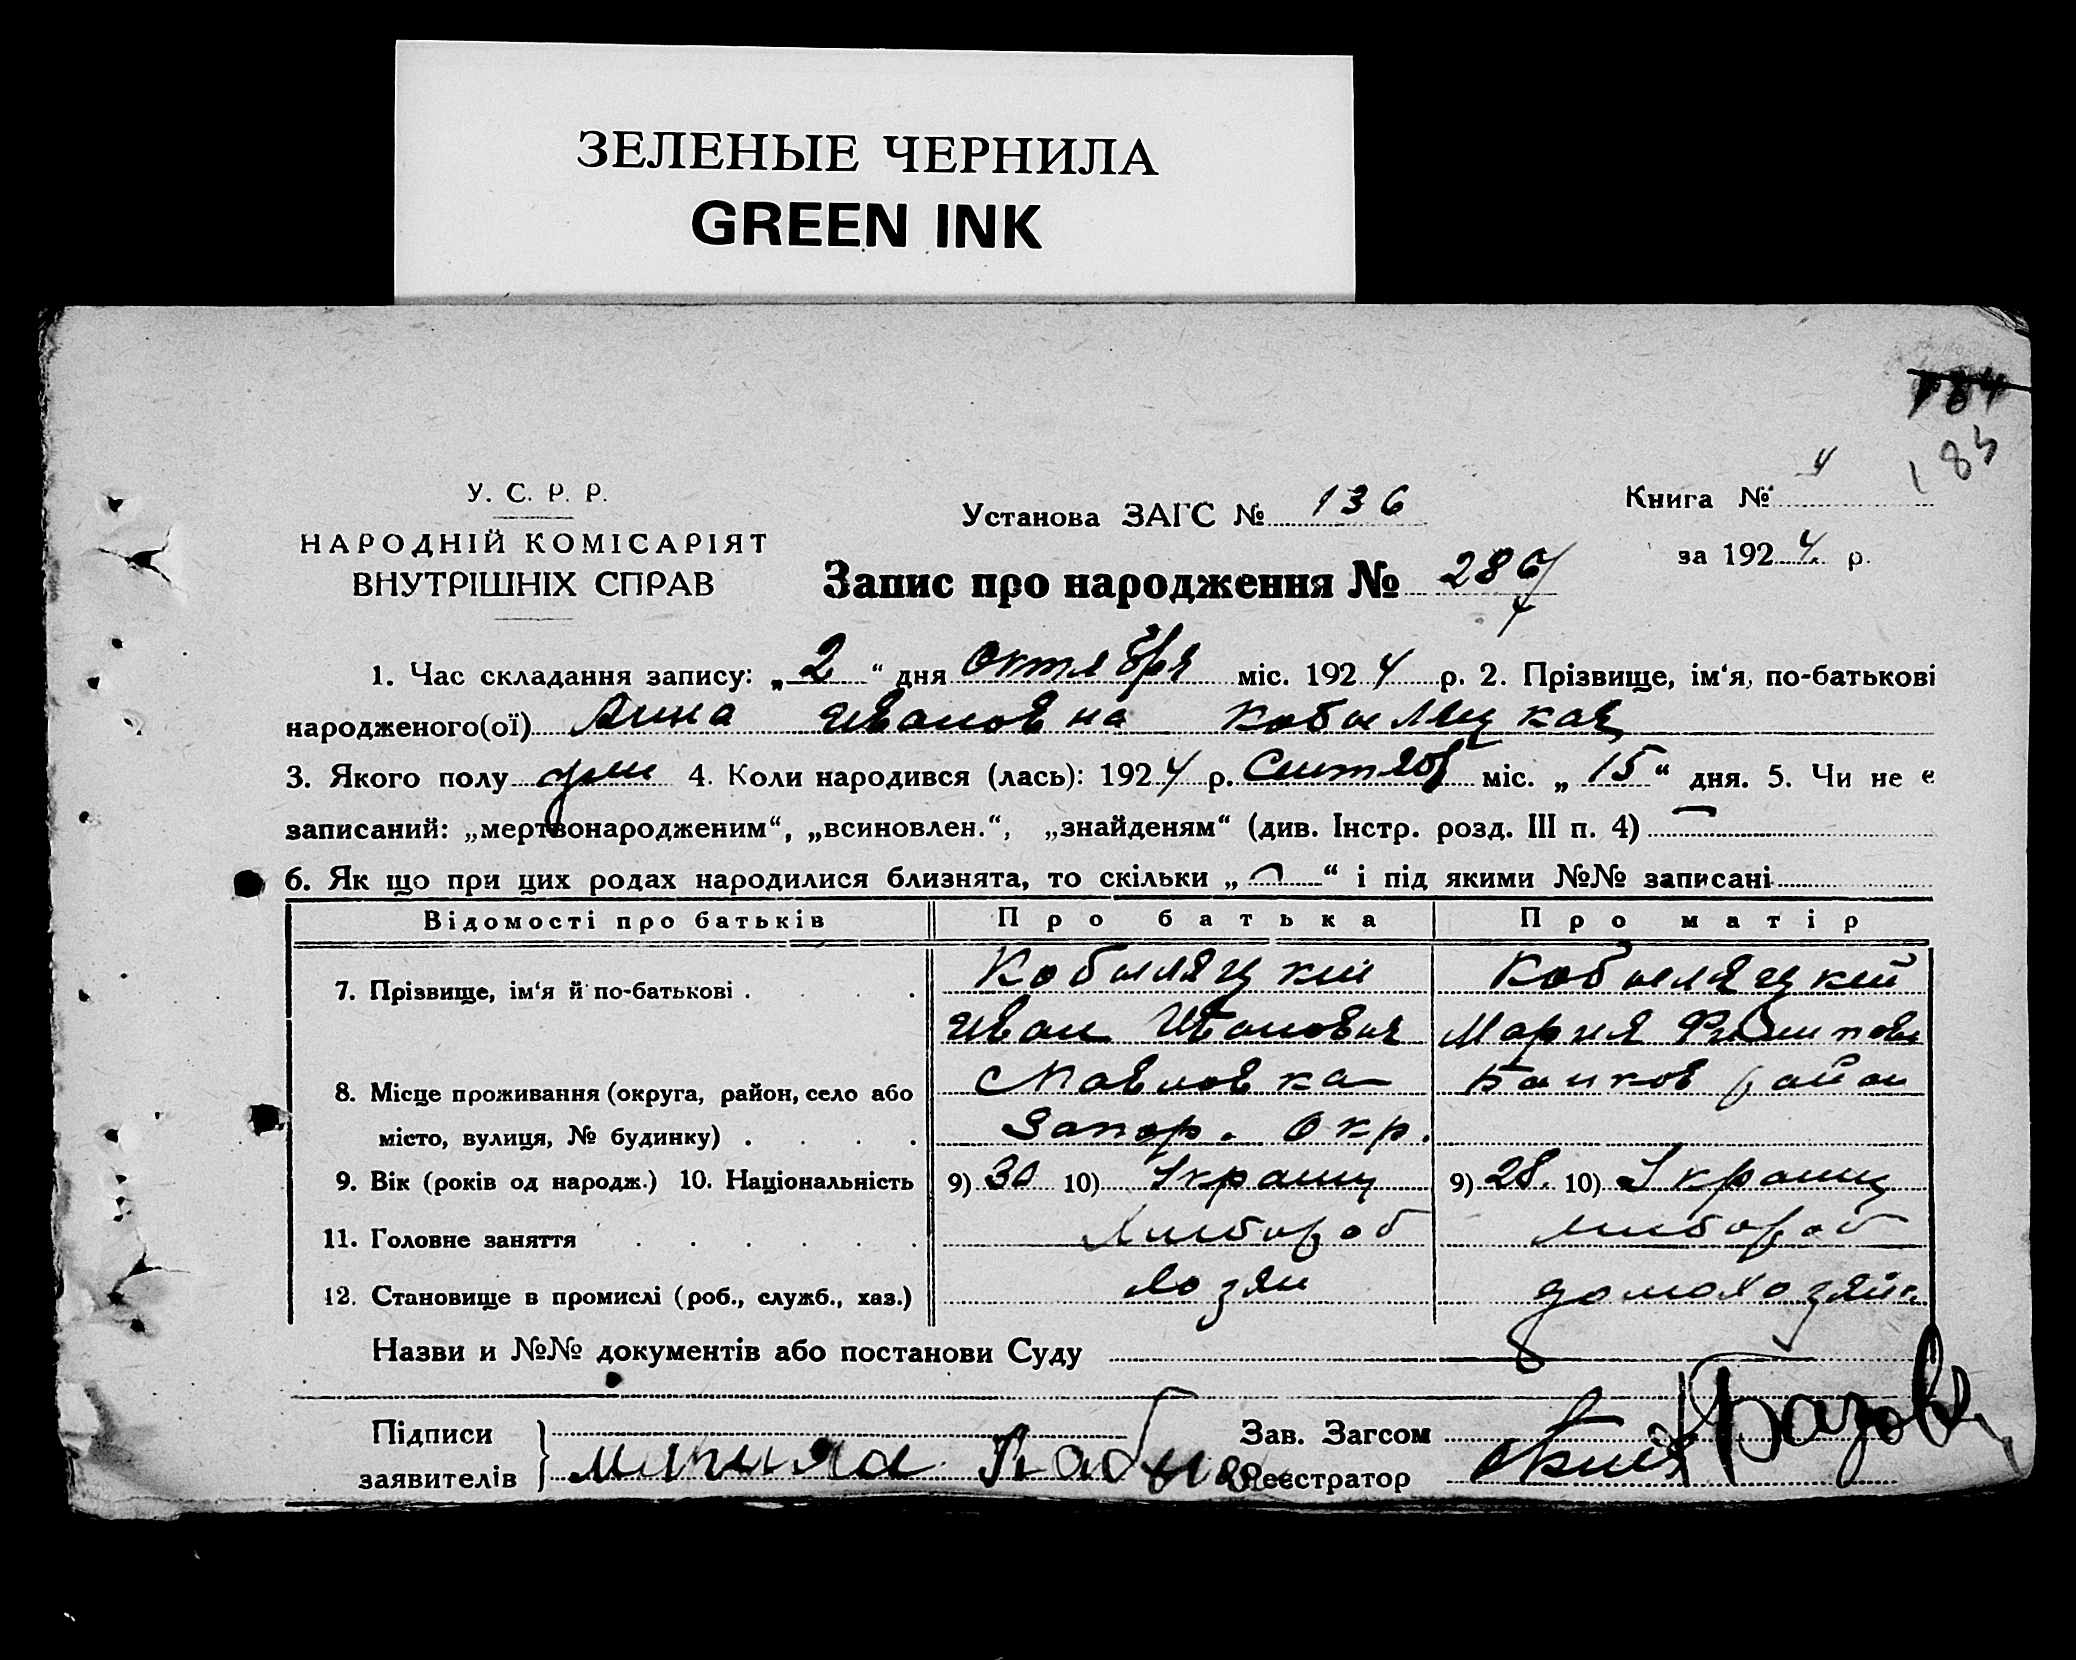 ЗЕЛЕНЫЕ ЧЕРНИЛА
GREEN INK
184
183
У. С. Р. Р.
НАРОДНІЙ КОМІСАРІЯТ
ВНУТРІШНІХ СПРАВ
Установа ЗАГС № 136
Книга № 4
за 1924 р.
Запис про народження № 287
1. Час складання запису: „2“ дня Октября міс. 1924 р. 2. Прізвище, ім‘я, по-батькові
народженого(ої) Анна Ивановна Кобыляцкая
3. Якого полу жен 4. Коли народився (лась): 1924 р. Сентяб міс. „15“ дня. 5. Чи не є
записаний: „мертвонародженим“, „всиновлен.“, „знайденям“ (див. Інстр. розд. III п. 4) —
6. Як що при цих родах народилися близнята, то скільки „—“ і під якими №№ записані
Відомості про батьків Про батька Про матір
7. Прізвище, ім‘я й по-батькові . . . . Кобыляцкий Кобыляцкий
Иван Иванович Мария Филипов
8. Місце проживання (округа, район, село або Павловка район
місто, вулиця, № будинку) . . . . Запор. Окр.
9. Вік (років од народж.) 10. Національність 9) 30 10) Украинц 9) 28. 10) Украинц
11. Головне заняття . . . . . . Хлибороб хлибороб
12. Становище в промислі (роб., служб., хаз.) Хозяин домохозяйк.
Назви и №№ документів або постанови Суду
Підписи Зав. Загсом
заявителів } Реєстратор